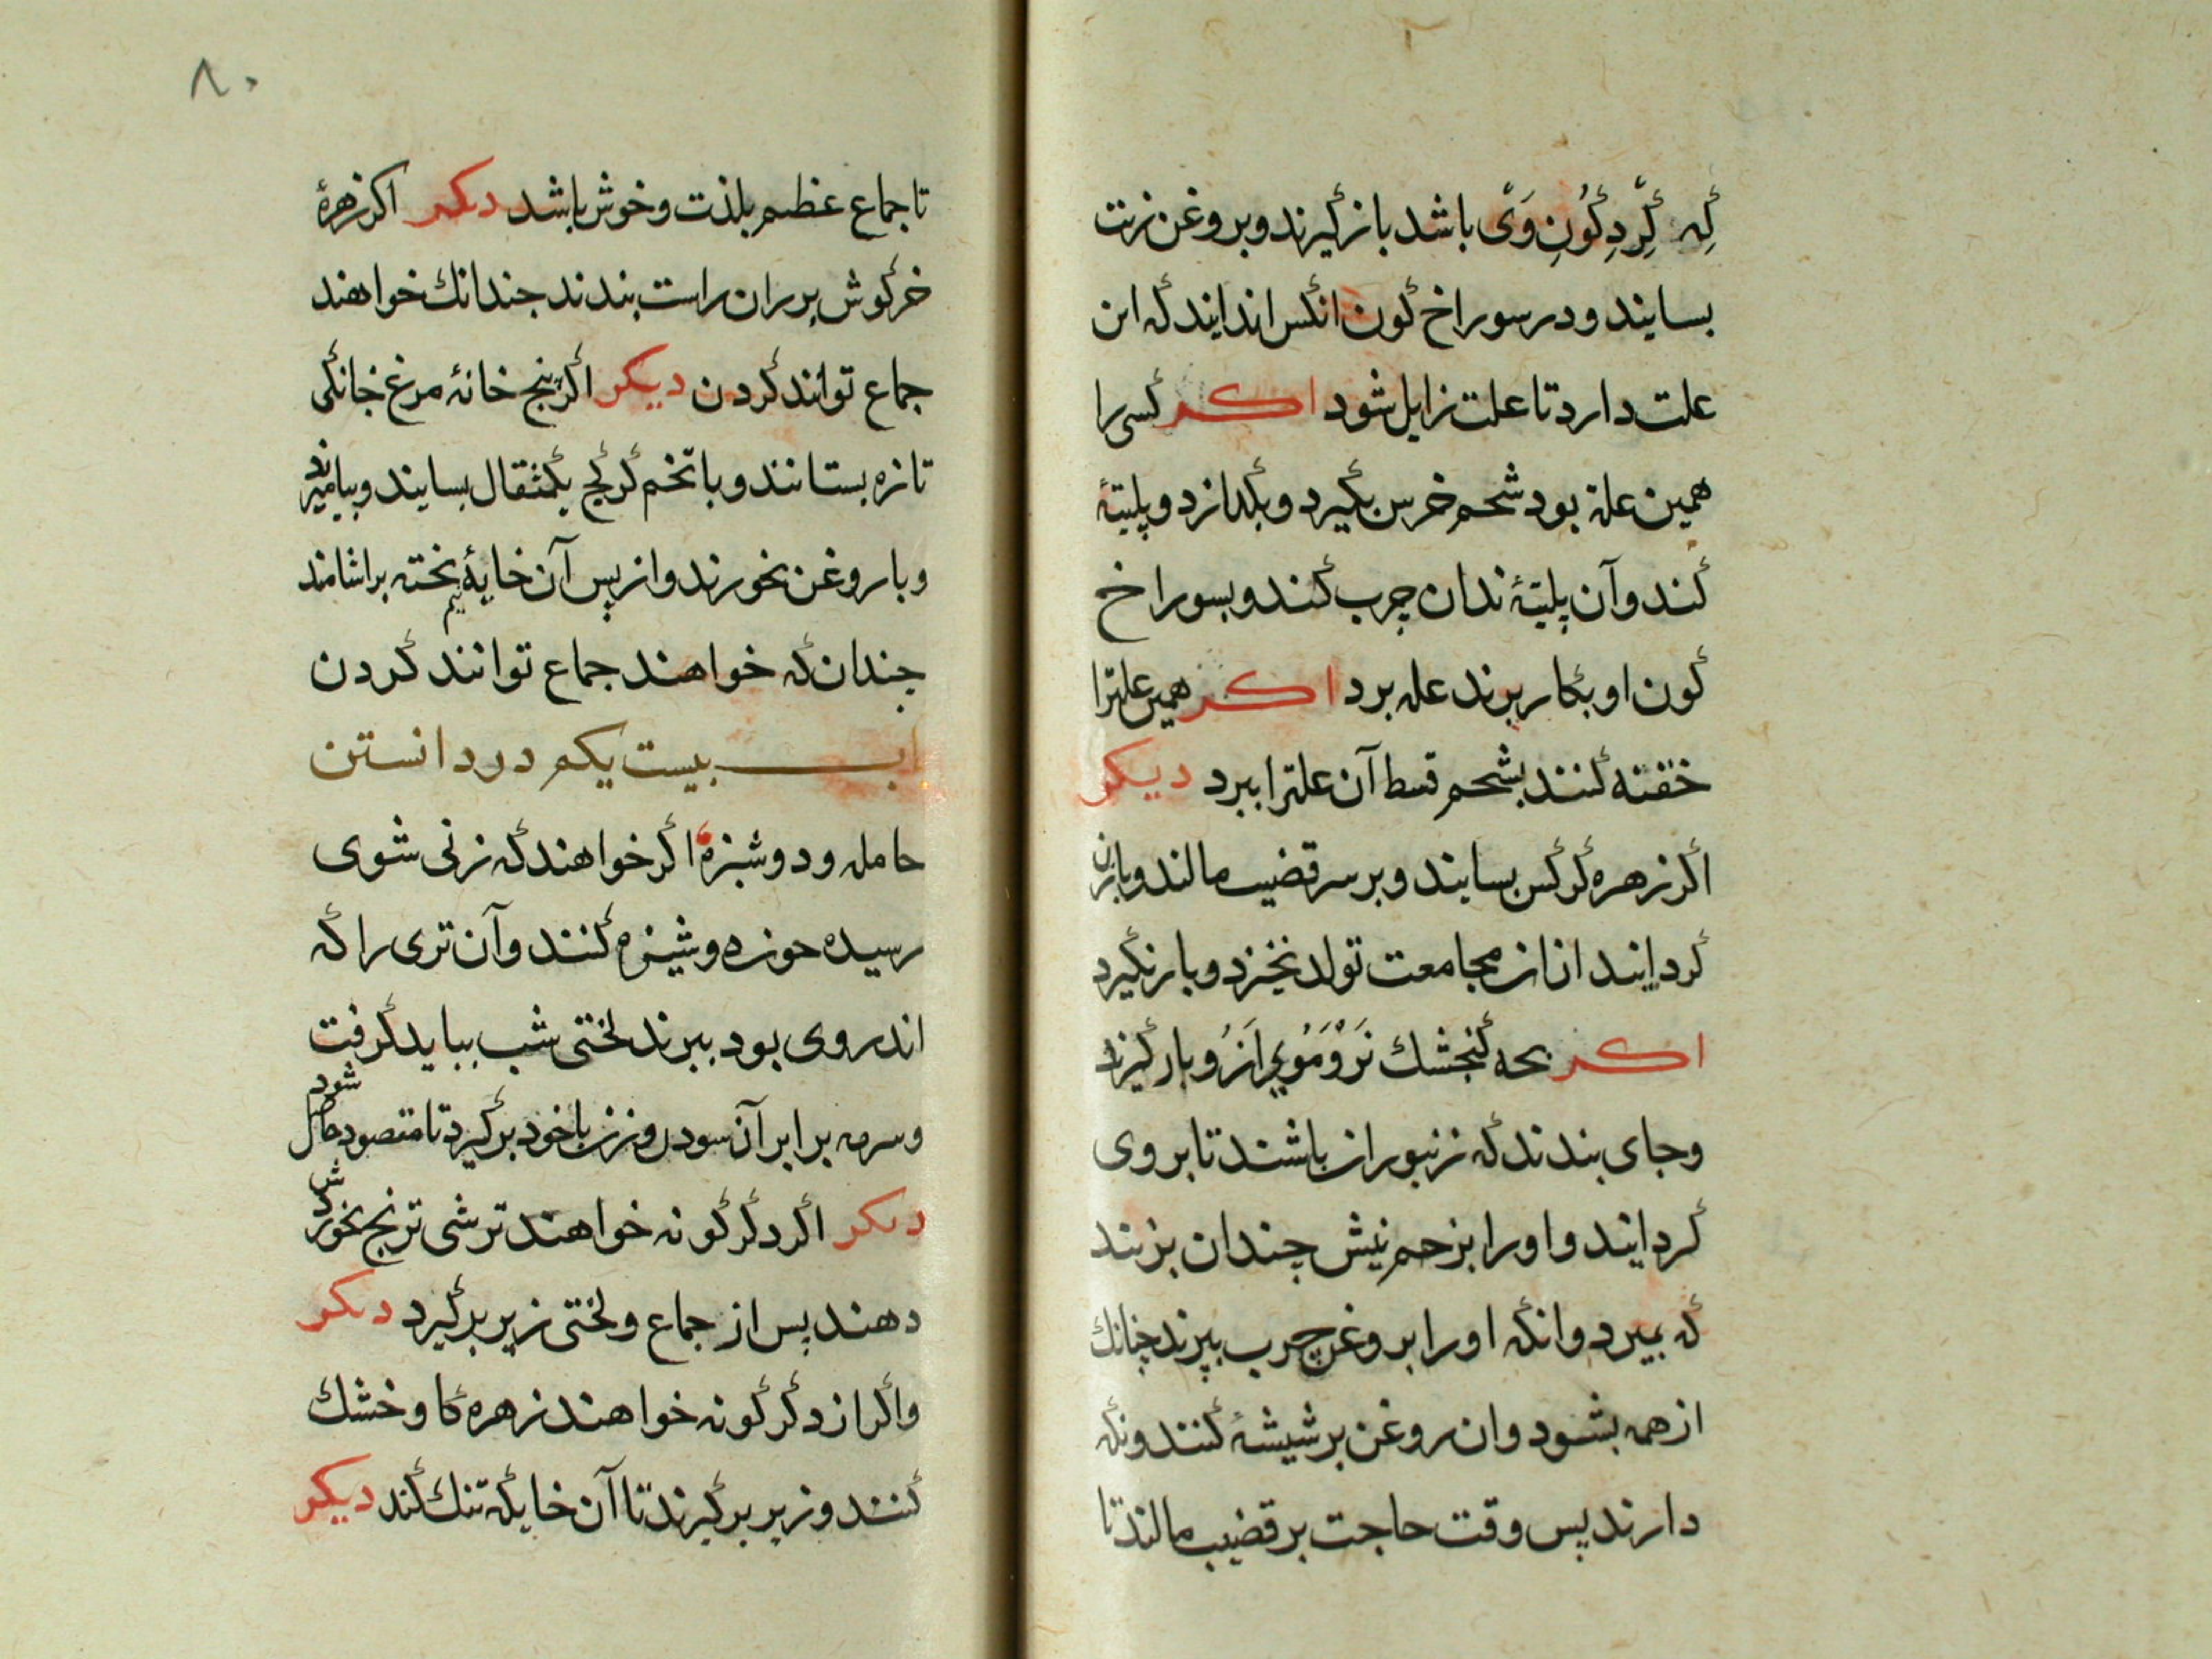 که گرد کون وی باشد بازگیرند و بروغن زیت
بسایند و در سوراخ کون انکس اندایند که این
علت دارد تا علت زایل شود اکر کسی را
همین علة بود شحم خرس بگیرد و بگدازد و پلیتهٔ
کند و آن پلیتهٔ ندان چرب کند و بسوراخ
کون او بکار برند عله برد اکر همین علترا
حقنه کنند بشحم قسط آن علترا ببرد دیکر
اکر زهره کرکس بسایند و بر سر قضیب مالند و بازن
کرد ایند از مجامعت تولد نخیزد و بار نگیرد
اکر بحه کنجشك نر و موی از رو بار گیرند
و جای بندند که زنبوران باشند تا بر وی
کرد ایند و اورا بزحم نیش چندان بزنند
که بمیرد وانکه اورا بروغن چرب بپزند چنانك
از همه بشود و ان روغن بر شیشهٔ کنند و نکه
دارند پس وقت حاجت بر قضیب مالند تا
۸۰
تا جماع عظیم بلذت و خوش باشد دیکر اکر زهرهٔ
خرکوش بر ران راست بندند جندانك خواهند
جماع توانند کردن دیکر اکر پنج خانهٔ مرغ خانکی
تازه بستانند و با تخم کرکج یکمثقال بسایند و بیامیزند
و با روغن بخورند و از پس آن خایهٔ نیم پخته براشامند
جندان که خواهند جماع توانند کردن
باب بیست یکم در دانستن
حامله و دوشیزه اکر خواهند که زنی شوی
رسیده جون دوشیزه کنند و آن تری را که
اندر وی بود ببرند لختی شب ببایدکرفت
و سرمه برابر آن سودن و زن با خود برکیرد تا مقصود حاصل شود
دیکر اکر دکرکونه خواهند ترشی ترنج بخوردش
دهند پس از جماع و لختی زیر برکیرد دیکر
واکر از دکرکونه خواهند زهره کاو خشك
کنند و زیر برکیرند تا آن خایکه تنك کند دیکر